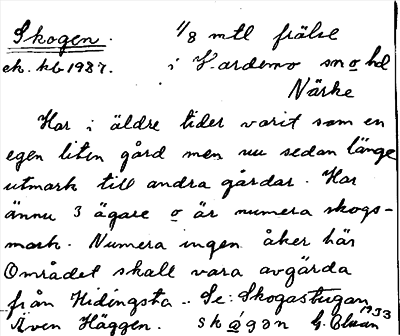 Skogen. 1/8 mtl frälse
ek. kb 1937. i Hardemo sn o hd
Närke
Har i äldre tider varit som en
egen liten gård men nu sedan länge
utmark till andra gårdar. Har
ännu 3 ägare o är numera skogs-
mark. Numera ingen åker här
Området skall vara avgärda
från Hidingsta.. Se: Skogastugan
Även Häggen. skogən G. Ekman 1933